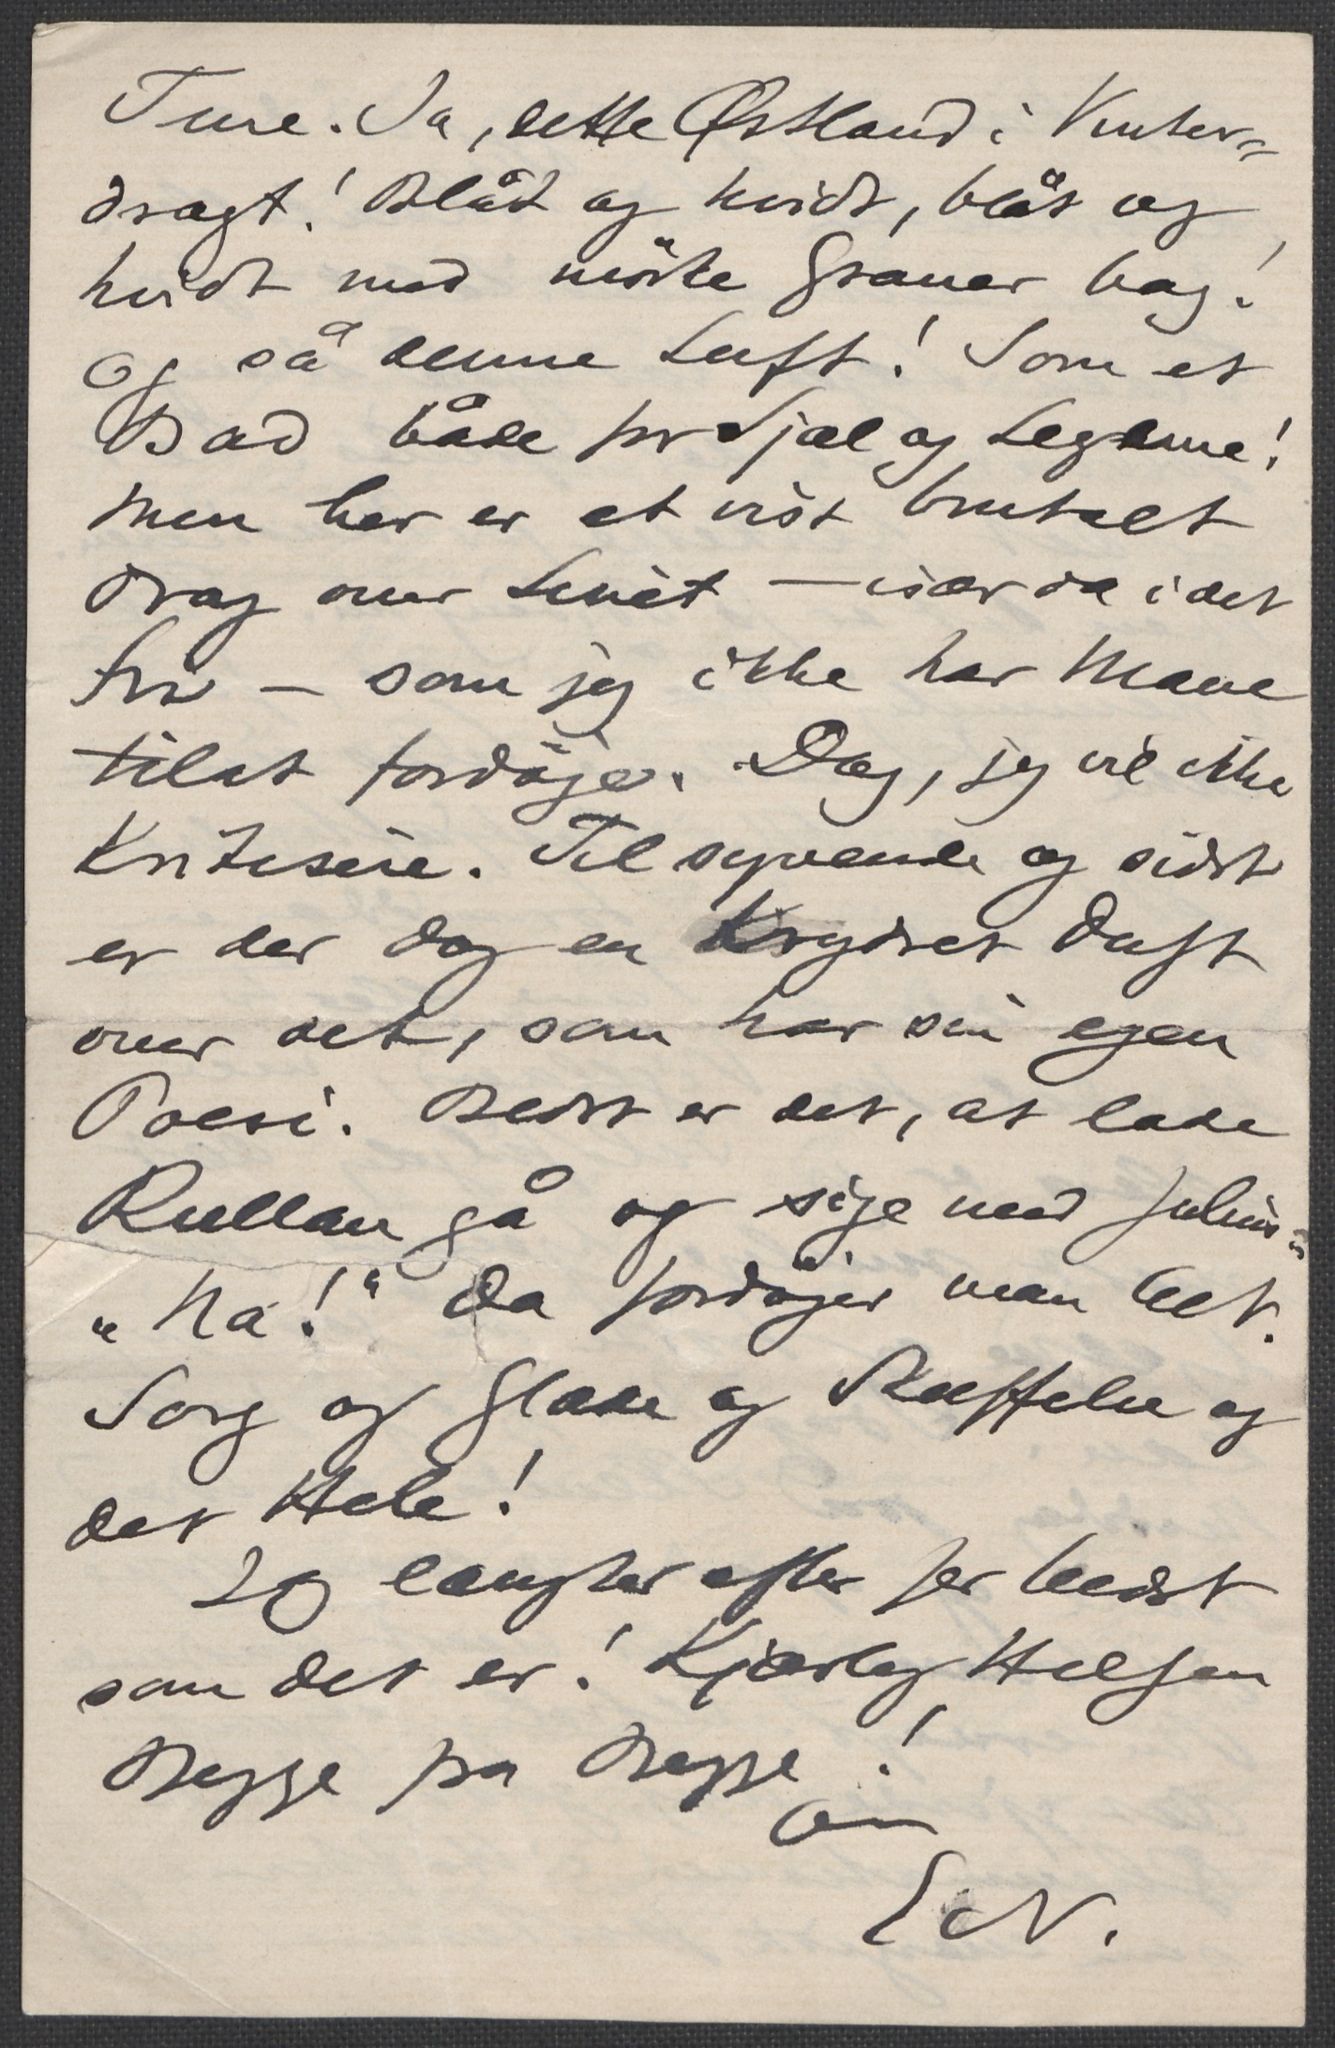 Ture. Ja, dette Østland i Vinter=
dragt! Blåt og hvidt, blåt og
hvidt med mörke Graner bag!
Og så denne Luft! Som et
Bad både for Sjæl og Legeme!
Men her er et vist brutalt
drag over Livet – især da i det
fri – som jeg ikke har Mave
til at fordöje. Dog, jeg vil ikke
kritisere. Til syvende og sidst
er der dog en krydret Duft
over det, som har sin egen
Poesi. Bedst er det, at lade
Rullan gå og sige med Julius:
„Na!" Da fordöjer man Alt.
Sorg og Glæde og Skuffelse og
det Hele!
Jeg længter efter Jer bedst
som det er! Kjærlig Hilsen
Begge fra Begge!